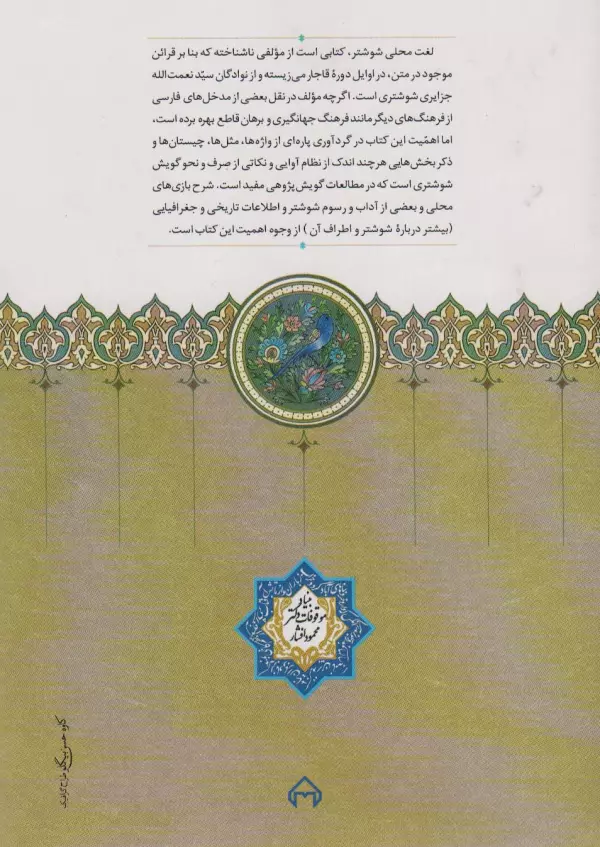 لغت محلی شوشتر، کتابی است از مؤلفی ناشناخته که بنا بر قرائن
موجود در متن، در اوایل دورهٔ قاجار می‌زیسته و از نوادگان سیّد نعمت‌الله
جزایری شوشتری است. اگرچه مؤلف در نقل بعضی از مدخل‌های فارسی
از فرهنگ‌های دیگر مانند فرهنگ جهانگیری و برهان قاطع بهره برده است،
اما اهمّیت این کتاب در گردآوری پاره‌ای از واژه‌ها، مثل‌ها، چیستان‌ها و
ذکر بخش‌هایی هرچند اندک از نظام آوایی و نکاتی از صرف و نحو گویش
شوشتری است که در مطالعات گویش‌پژوهی مفید است. شرح بازی‌های
محلی و بعضی از آداب و رسوم شوشتر و اطلاعات تاریخی و جغرافیایی
(بیشتر دربارهٔ شوشتر و اطراف آن) از وجوه اهمیت این کتاب است.
بنیاد
موقوفات دکتر
محمود افشار
طراح گرافیک